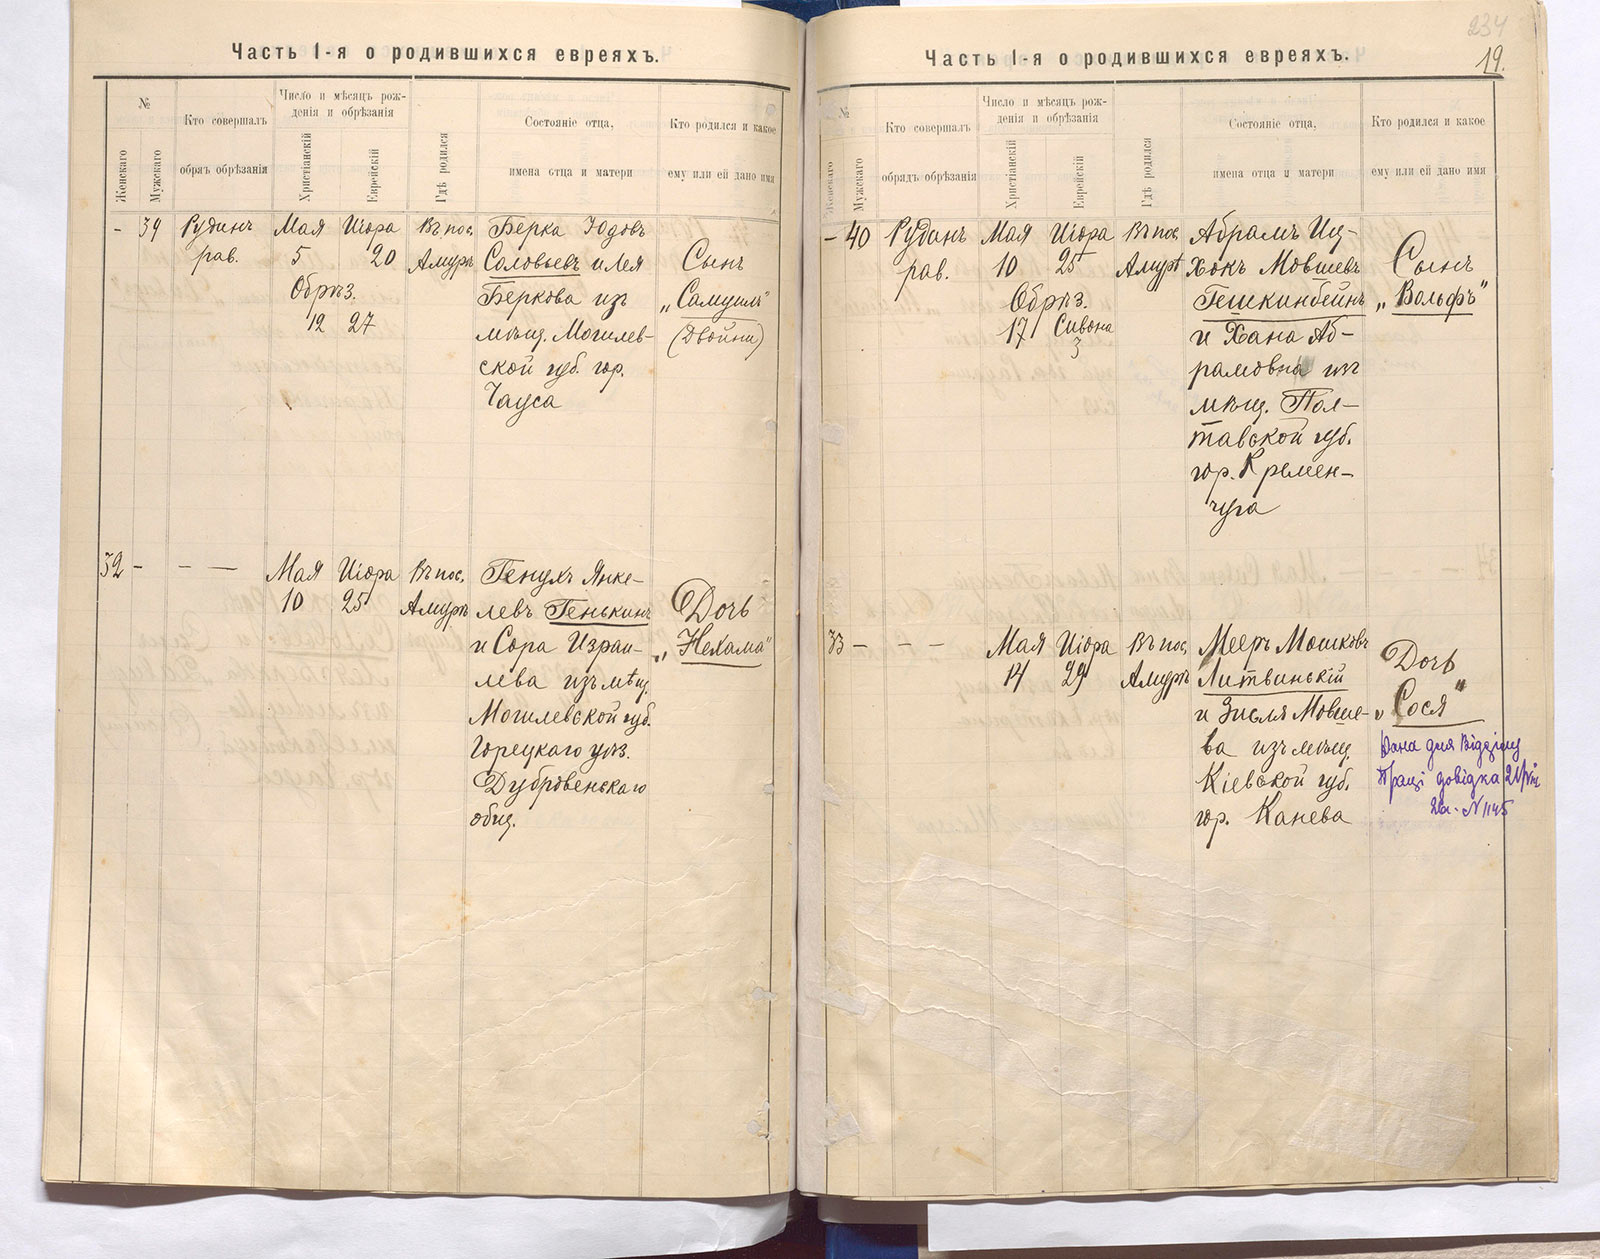 Часть 1-я о родившихся евреяхъ.
№
Женскаго
Мужскаго
Кто совершалъ
обряъ обрѣзанія
Число и мѣсяцъ рож-
денія и обрѣзанія
Христіанскій
Еврейскій
Гдѣ родился
Состояніе отца,
имена отца и матери
Кто родился и какое
ему или ей дано имя
- 39
Рудинъ
рав.
Мая
5
Обрѣз.
12
Иіора
20
27
Въ пос.
Амуръ
Берка Іодовъ
Соловьевъ и Лея
Беркова изъ
мѣщ. Могилев-
ской губ. гор.
Чауса
Сынъ
„Самуилъ"
(Двойни)
32 -
- —
Мая
10
Иіора
25
Въ пос.
Амуръ
Генухъ Янке-
левъ Генькинъ
и Сора Израи-
лева изъ мѣщ.
Могилевской губ.
Горецкаго уѣз.
Дубровенскаго
общ.
Дочь
„Нехама"
234
19.
Часть 1-я о родившихся евреяхъ.
№
Женскаго
Мужскаго
Кто совершалъ
обрядъ обрѣзанія
Число и мѣсяцъ рож-
денія и обрѣзанія
Христіанскій
Еврейскій
Гдѣ родился
Состояніе отца,
имена отца и матери
Кто родился и какое
ему или ей дано имя
- 40
Рудинъ
рав.
Мая
10
Обрѣз.
17
Иіора
25
Сивона
3
Въ пос.
Амуръ
Абрамъ Иц-
хокъ Мовшевъ
Гешкинбейнъ
и Хана Аб-
рамовна изъ
мѣщ. Пол-
тавской губ.
гор. Кремен-
чуга
Сынъ
„Вольфъ"
33 -
- —
Мая
14
Иіора
29
Въ пос.
Амуръ
Мееръ Мошковъ
Литвинскій
и Зисля Мовше-
ва изъ мѣщ.
Кіевской губ.
гор. Канева
Дочь
„Сося"
Дана для Відділу
Праці довідка
№ 1145